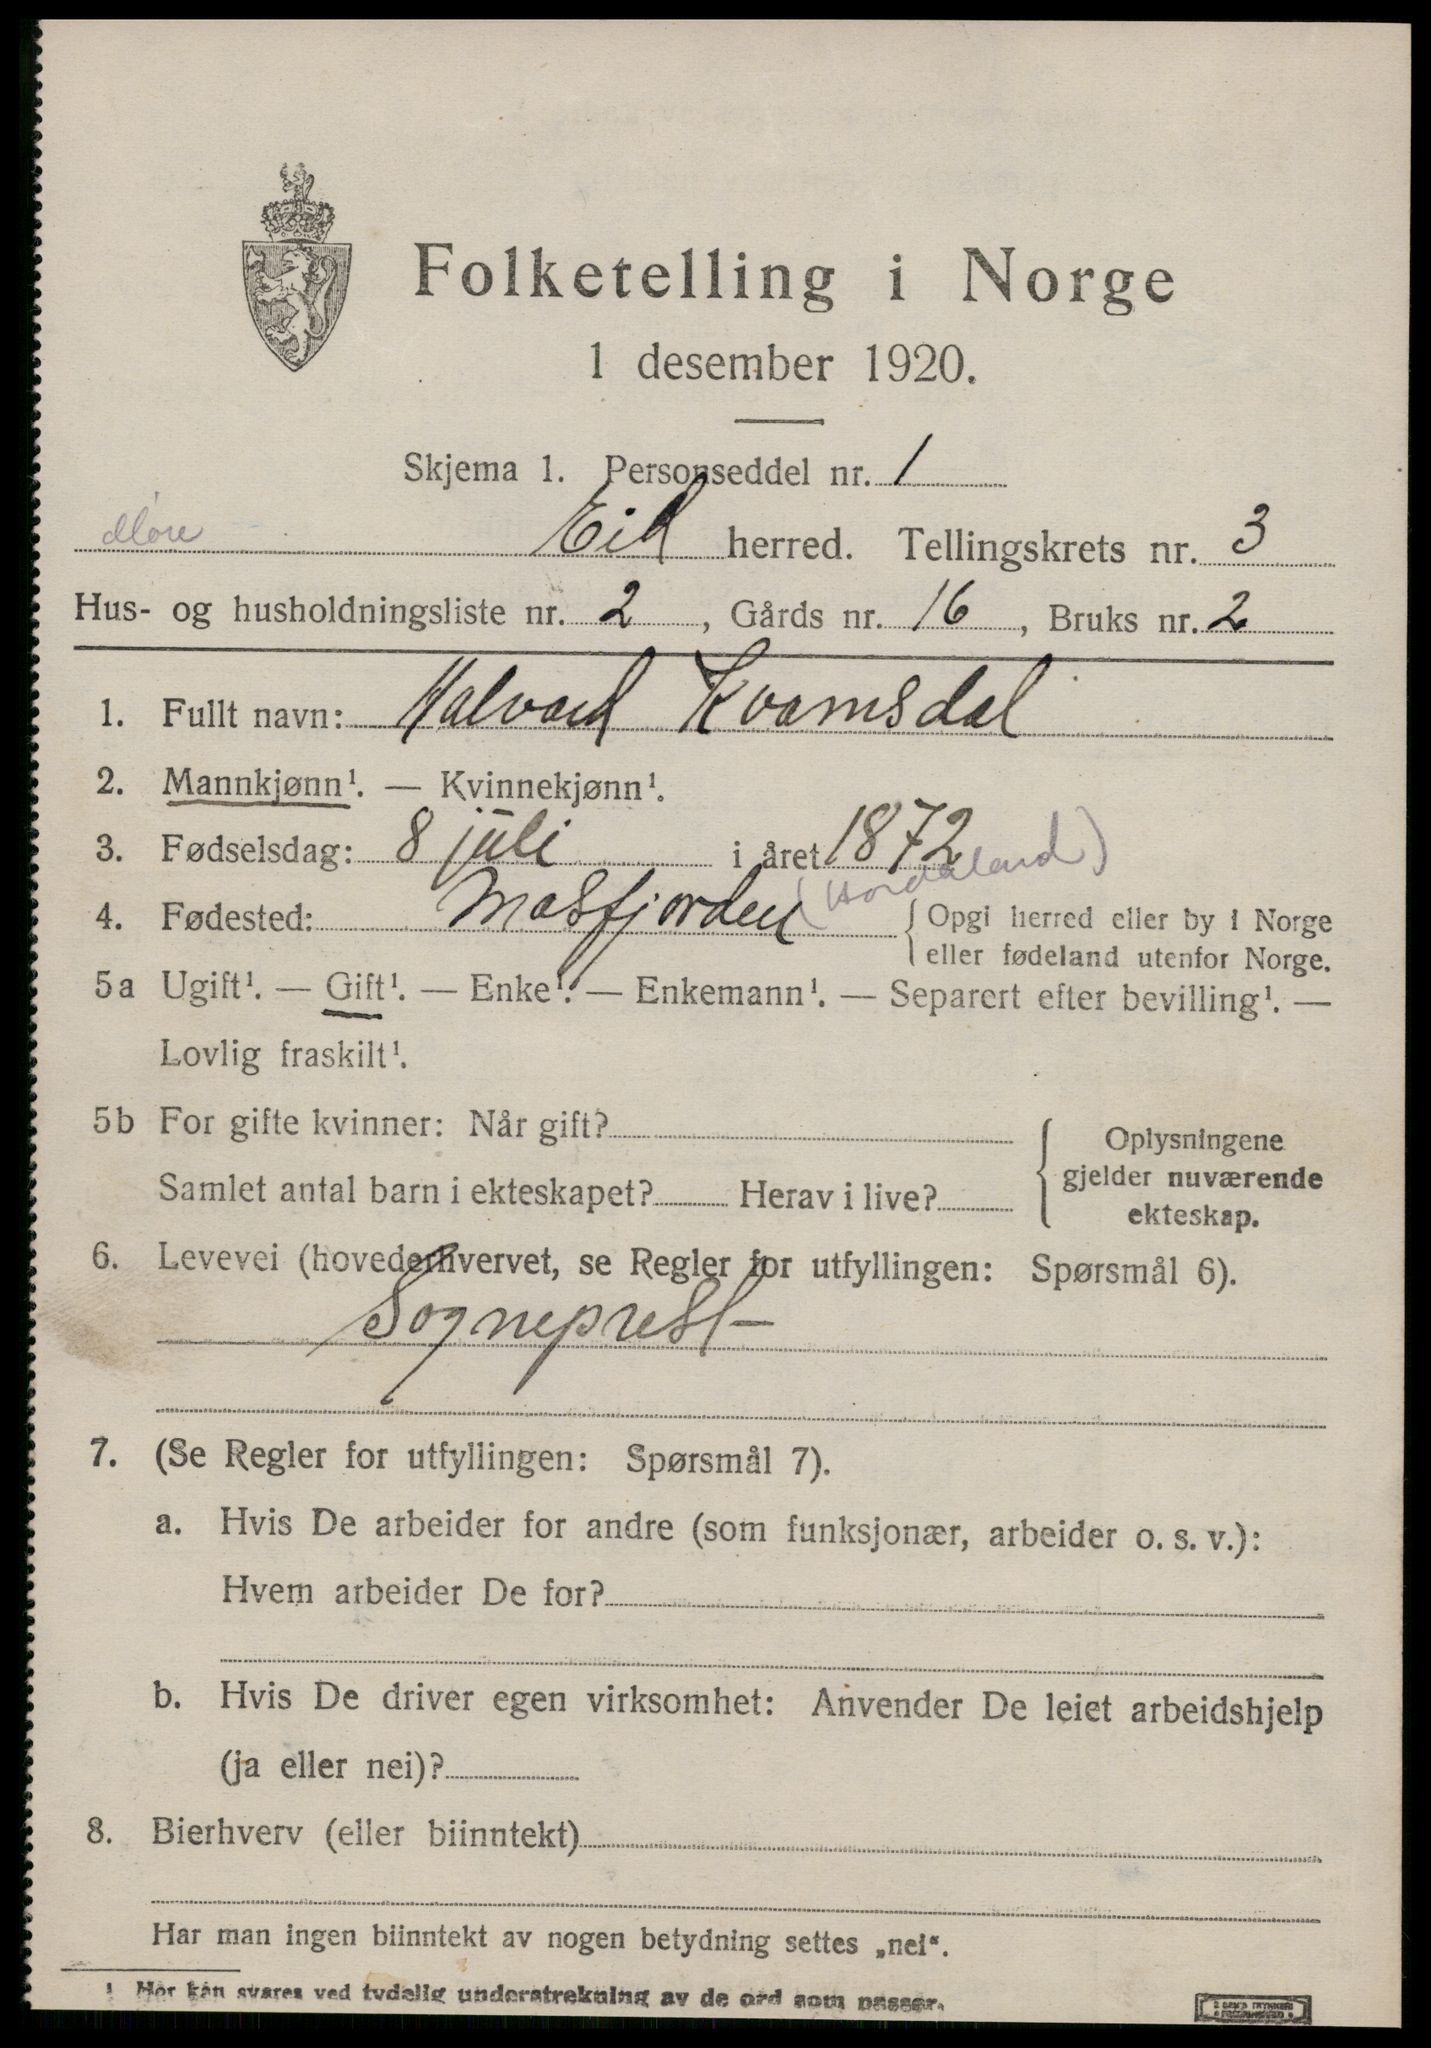 Folketelling i Norge
1 desember 1920.
Skjema 1. Personseddel nr. 1
Møre Eid herred. Tellingskrets nr. 3
Hus- og husholdningsliste nr. 2, Gårds nr. 16, Bruks nr. 2
1. Fullt navn: Halvard Kvamsdal
2. Mannkjønn¹. — Kvinnekjønn¹.
3. Fødselsdag: 8 juli i året 1872
4. Fødested: Masfjorden (Hordaland) { Opgi herred eller by i Norge
eller fødeland utenfor Norge.
5a Ugift¹. — Gift¹. — Enke¹. — Enkemann¹. — Separert efter bevilling¹. —
Lovlig fraskilt¹.
5b For gifte kvinner: Når gift?
Samlet antal barn i ekteskapet? Herav i live?
Oplysningene
gjelder nuværende
ekteskap.
6. Levevei (hovederhvervet, se Regler for utfyllingen: Spørsmål 6).
Sogneprest
7. (Se Regler for utfyllingen: Spørsmål 7).
a. Hvis De arbeider for andre (som funksjonær, arbeider o. s. v.):
Hvem arbeider De for?
b. Hvis De driver egen virksomhet: Anvender De leiet arbeidshjelp
(ja eller nei)?
8. Bierhverv (eller biinntekt)
Har man ingen biinntekt av nogen betydning settes „nei“.
¹ Her kan svares ved tydelig understrekning av de ord som passer.